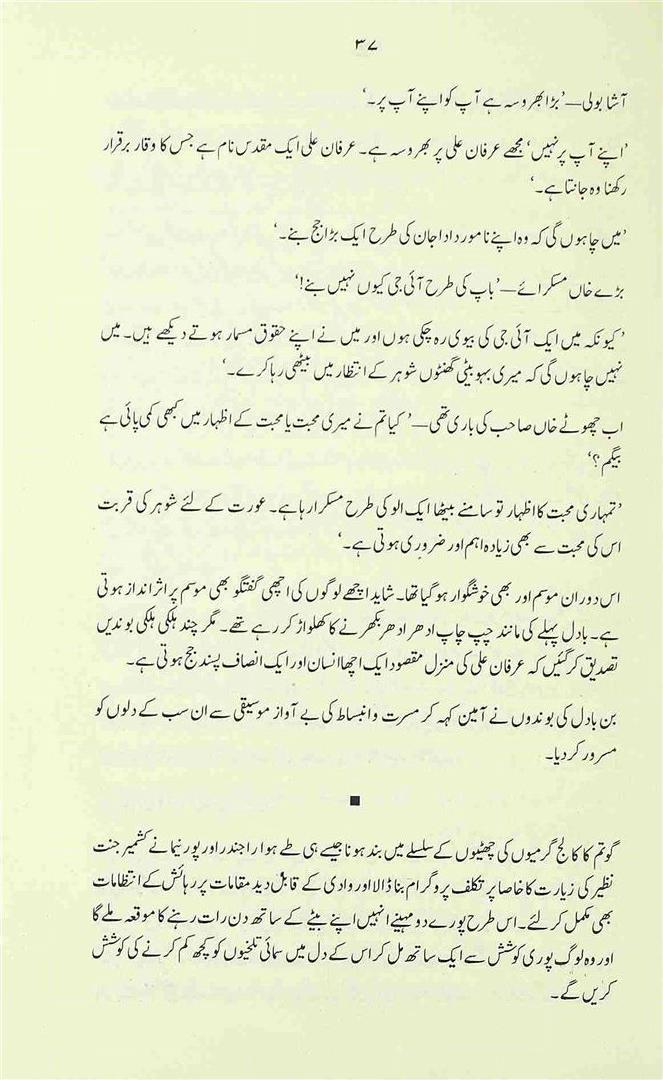 ۳۷
آشا بولی—’بڑا بھروسہ ہے آپ کو اپنے آپ پر۔‘
’اپنے آپ پر نہیں‘ مجھے عرفان علی پر بھروسہ ہے۔ عرفان علی ایک مقدس نام ہے جس کا وقار برقرار
رکھنا وہ جانتا ہے۔‘
’میں چاہوں گی کہ وہ اپنے نامور دادا جان کی طرح ایک بڑا جج بنے۔‘
بڑے خاں مسکرائے—’باپ کی طرح آئی جی کیوں نہیں بنے!‘
’کیونکہ میں ایک آئی جی کی بیوی رہ چکی ہوں اور میں نے اپنے حقوق مسمار ہوتے دیکھے ہیں۔ میں
نہیں چاہوں گی کہ میری بہو بیٹی گھنٹوں شوہر کے انتظار میں بیٹھی رہا کرے۔‘
اب چھوٹے خاں صاحب کی باری تھی—’کیا تم نے میری محبت یا محبت کے اظہار میں کبھی کمی پائی ہے
بیگم؟‘
’تمہاری محبت کا اظہار تو سامنے بیٹھا ایک الو کی طرح مسکرا رہا ہے۔ عورت کے لئے شوہر کی قربت
اس کی محبت سے بھی زیادہ اہم اور ضروری ہوتی ہے۔‘
اس دوران موسم اور بھی خوشگوار ہو گیا تھا۔ شاید اچھے لوگوں کی اچھی گفتگو بھی موسم پر اثر انداز ہوتی
ہے۔ بادل پہلے کی مانند چپ چاپ ادھر ادھر بکھرنے کا کھلواڑ کر رہے تھے۔ مگر چند ہلکی ہلکی بوندیں
تصدیق کر گئیں کہ عرفان علی کی منزل مقصود ایک اچھا انسان اور ایک انصاف پسند جج ہوتی ہے۔
بن بادل کی بوندوں نے آمین کہہ کر مسرت و انبساط کی بے آواز موسیقی سے ان سب کے دلوں کو
مسرور کر دیا۔
■
گوتم کا کالج گرمیوں کی چھٹیوں کے سلسلے میں بند ہونا جیسے ہی طے ہوا راجندر اور پورنیما نے کشمیر جنت
نظیر کی زیارت کا خاصا پر تکلف پروگرام بنا ڈالا اور وادی کے قابل دید مقامات پر رہائش کے انتظامات
بھی مکمل کر لئے۔ اس طرح پورے دو مہینے انہیں اپنے بیٹے کے ساتھ دن رات رہنے کا موقعہ ملے گا
اور وہ لوگ پوری کوشش سے ایک ساتھ مل کر اس کے دل میں سمائی تلخیوں کو کچھ کم کرنے کی کوشش
کریں گے۔